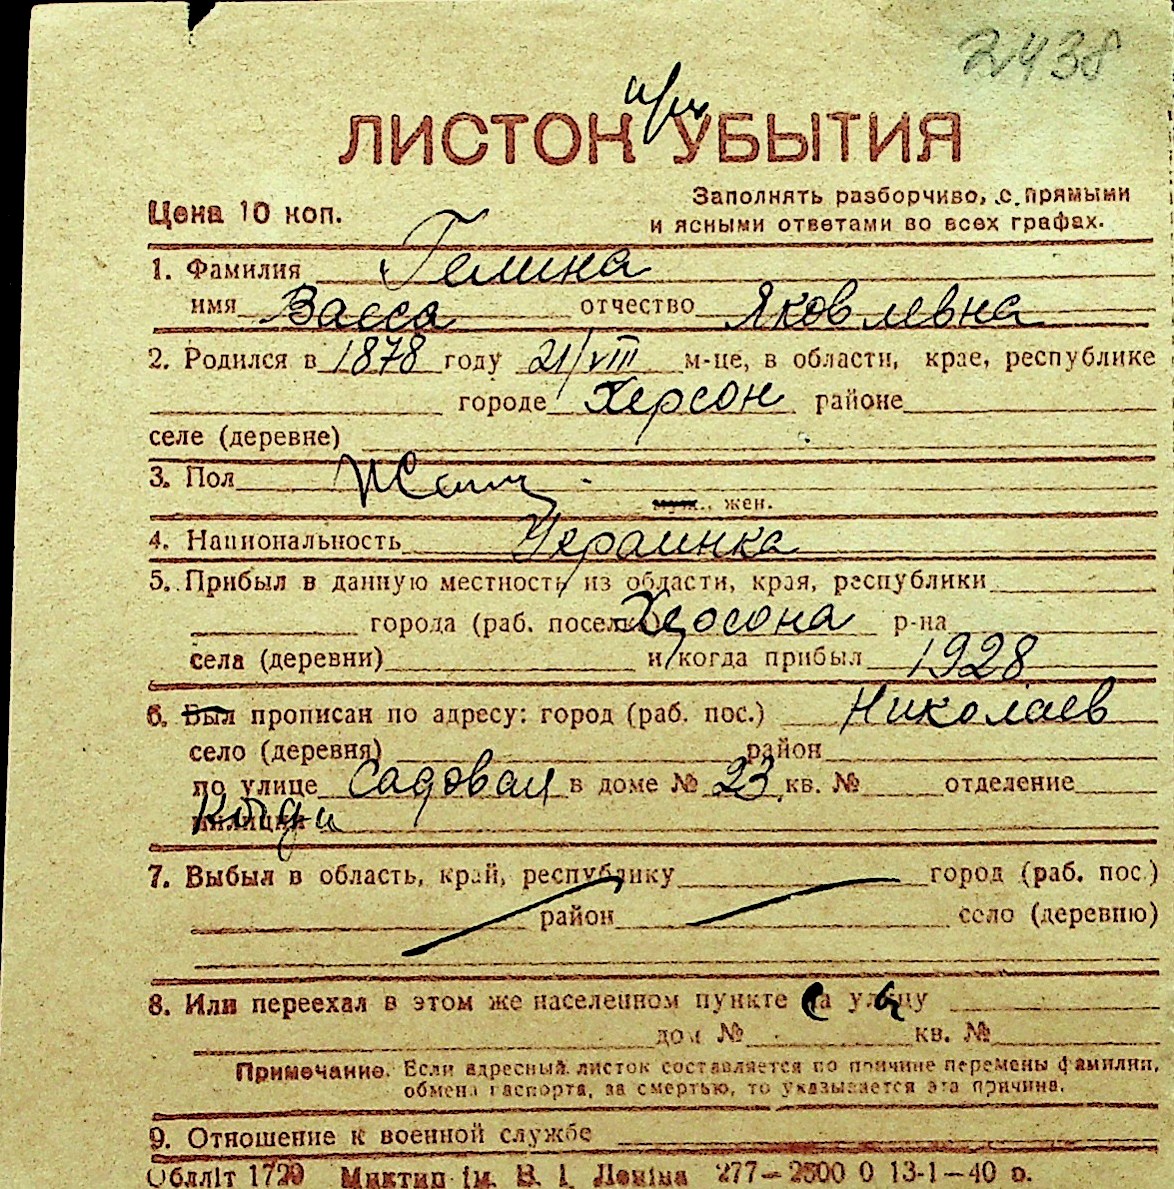 2438
ЛИСТОК УБЫТИЯ
Цена 10 коп.
Заполнять разборчиво, с прямыми
и ясными ответами во всех графах.
1. Фамилия Гелина
имя Васса отчество Яковлевна
2. Родился в 1878 году 21/VIII м-це, в области, крае, республике
городе Херсон районе
селе (деревне)
3. Пол Женщ
муж., жен.
4. Национальность Украинка
5. Прибыл в данную местность из области, края, республики
города (раб. поселка) Херсона р-на
села (деревни) и когда прибыл 1928
6. Был прописан по адресу: город (раб. пос.) Николаев
село (деревня) район
по улице Садовая в доме № 23 кв. № отделение
милиции
7. Выбыл в область, край, республику город (раб. пос.)
район село (деревню)
8. Или переехал в этом же населенном пункте на улицу
дом № кв. №
Примечание. Если адресный листок составляется по причине перемены фамилии,
обмена паспорта, за смертью, то указывается эта причина.
9. Отношение к военной службе
Облліт 1729 Миктип ім. В. І. Леніна 277—2500 0 13-1—40 р.